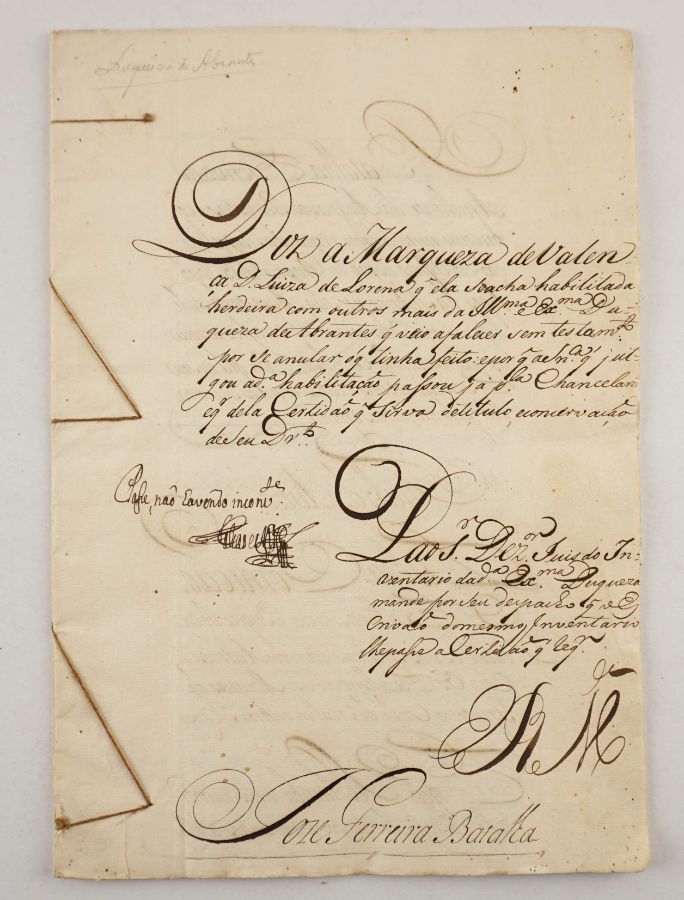 Duqueza de Abrantes
Diz a Marqueza de Valen-
ca D. Luiza de Lorena q̃ ela se acha habilitada
herdeira com outros mais da Illma e Exma Du-
queza de Abrantes q̃ veio a falecer sem testamto
por se anular oq̃ tinha feito: e por q̃ a Snca q̃ jul-
gou a da habilitação passou já pla Chancelaria
e q̃r dela Certidão q̃ Sirva de titulo, e conservação
de seu Drto
Passe, não havendo inconvte
P. ao Sr. Dezor Juis do In-
ventario da da Exma Duqueza
mande por seu despacho q̃ o Es-
crivão do mesmo Inventario
lhe passe a Certidão q̃ reqr
E R Mce
Joze Ferreira Batalha